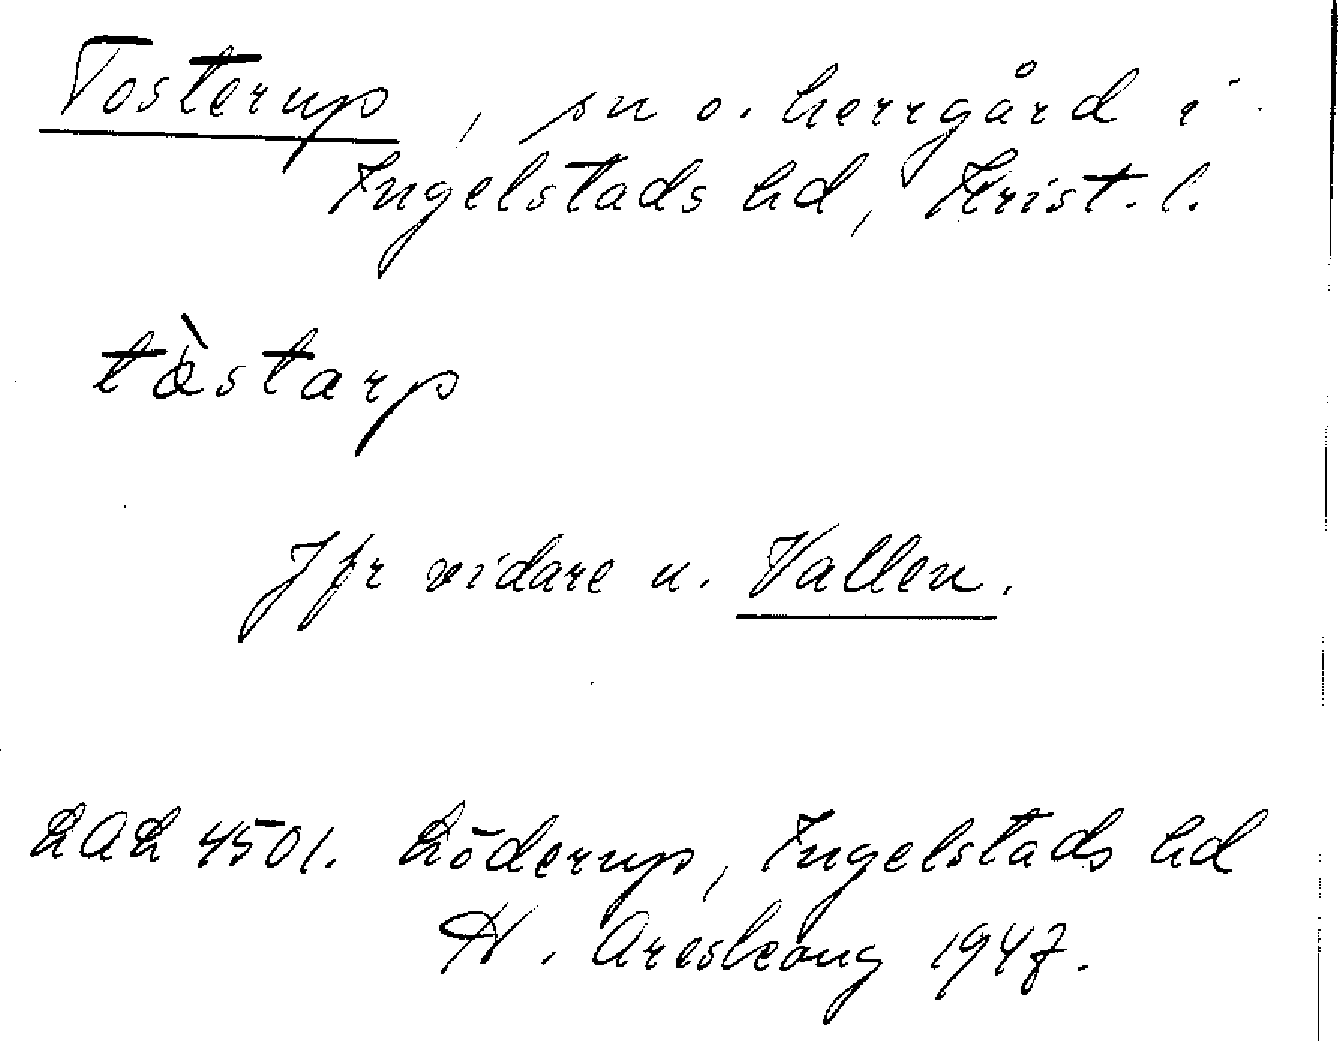 Tosterup, sn o. herrgård i
Ingelstads hd, Krist. l.
tàstarp
Jfr vidare u. Vallen.
LAL 4501. Löderup, Ingelstads hd
H. Areskoug 1947.